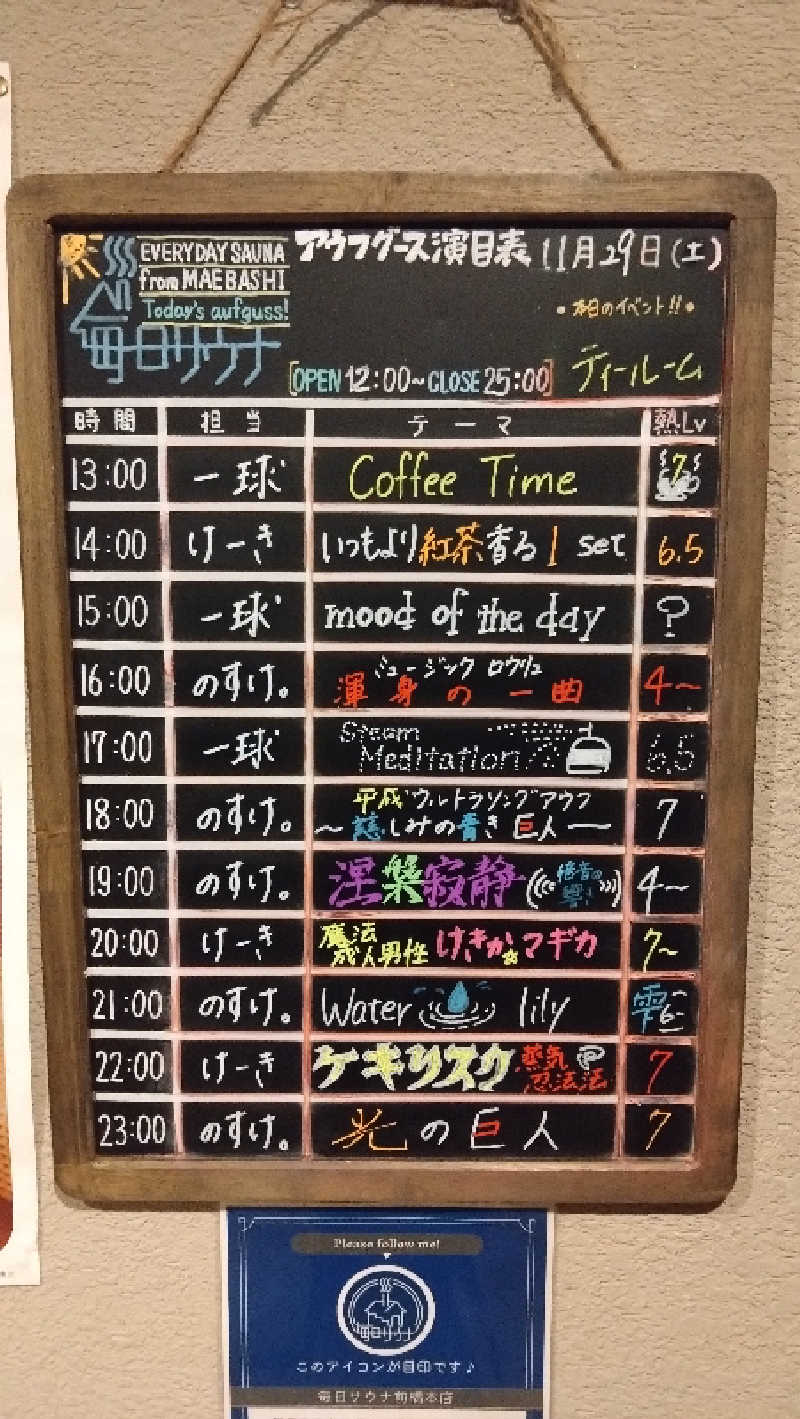 EVERYDAY SAUNA
from MAEBASHI
Today's aufguss!
毎日サウナ
アウフグース演目表 11月29日(土)
•本日のイベント!!•
[OPEN 12:00~CLOSE 25:00] ティールーム
時間 担当 テーマ 熱Lv
13:00 一球 Coffee Time 7
14:00 けーき いつもより紅茶香る1 set 6.5
15:00 一球 mood of the day ?
16:00 のすけ。 ミュージック ロウリュ 渾身の一曲 4~
17:00 一球 Steam Meditation 6.5
18:00 のすけ。 平成ウルトラソングアウフ ~慈しみの青き巨人― 7
19:00 のすけ。 涅槃寂静 倍音の響き 4~
20:00 けーき 魔法成人男性 けきか☆マギカ 7~
21:00 のすけ。 Water lily 雫6~
22:00 けーき ケキリスク 蒸気忍法法 7
23:00 のすけ。 光の巨人 7
Please follow me!
毎日サウナ
このアイコンが目印です♪
毎日サウナ前橋本店